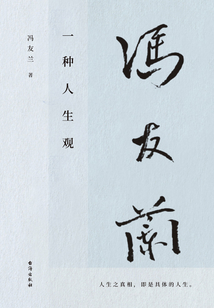 冯友兰 著
一种人生观
馮友蘭
人生之真相，即是具体的人生。
台海出版社